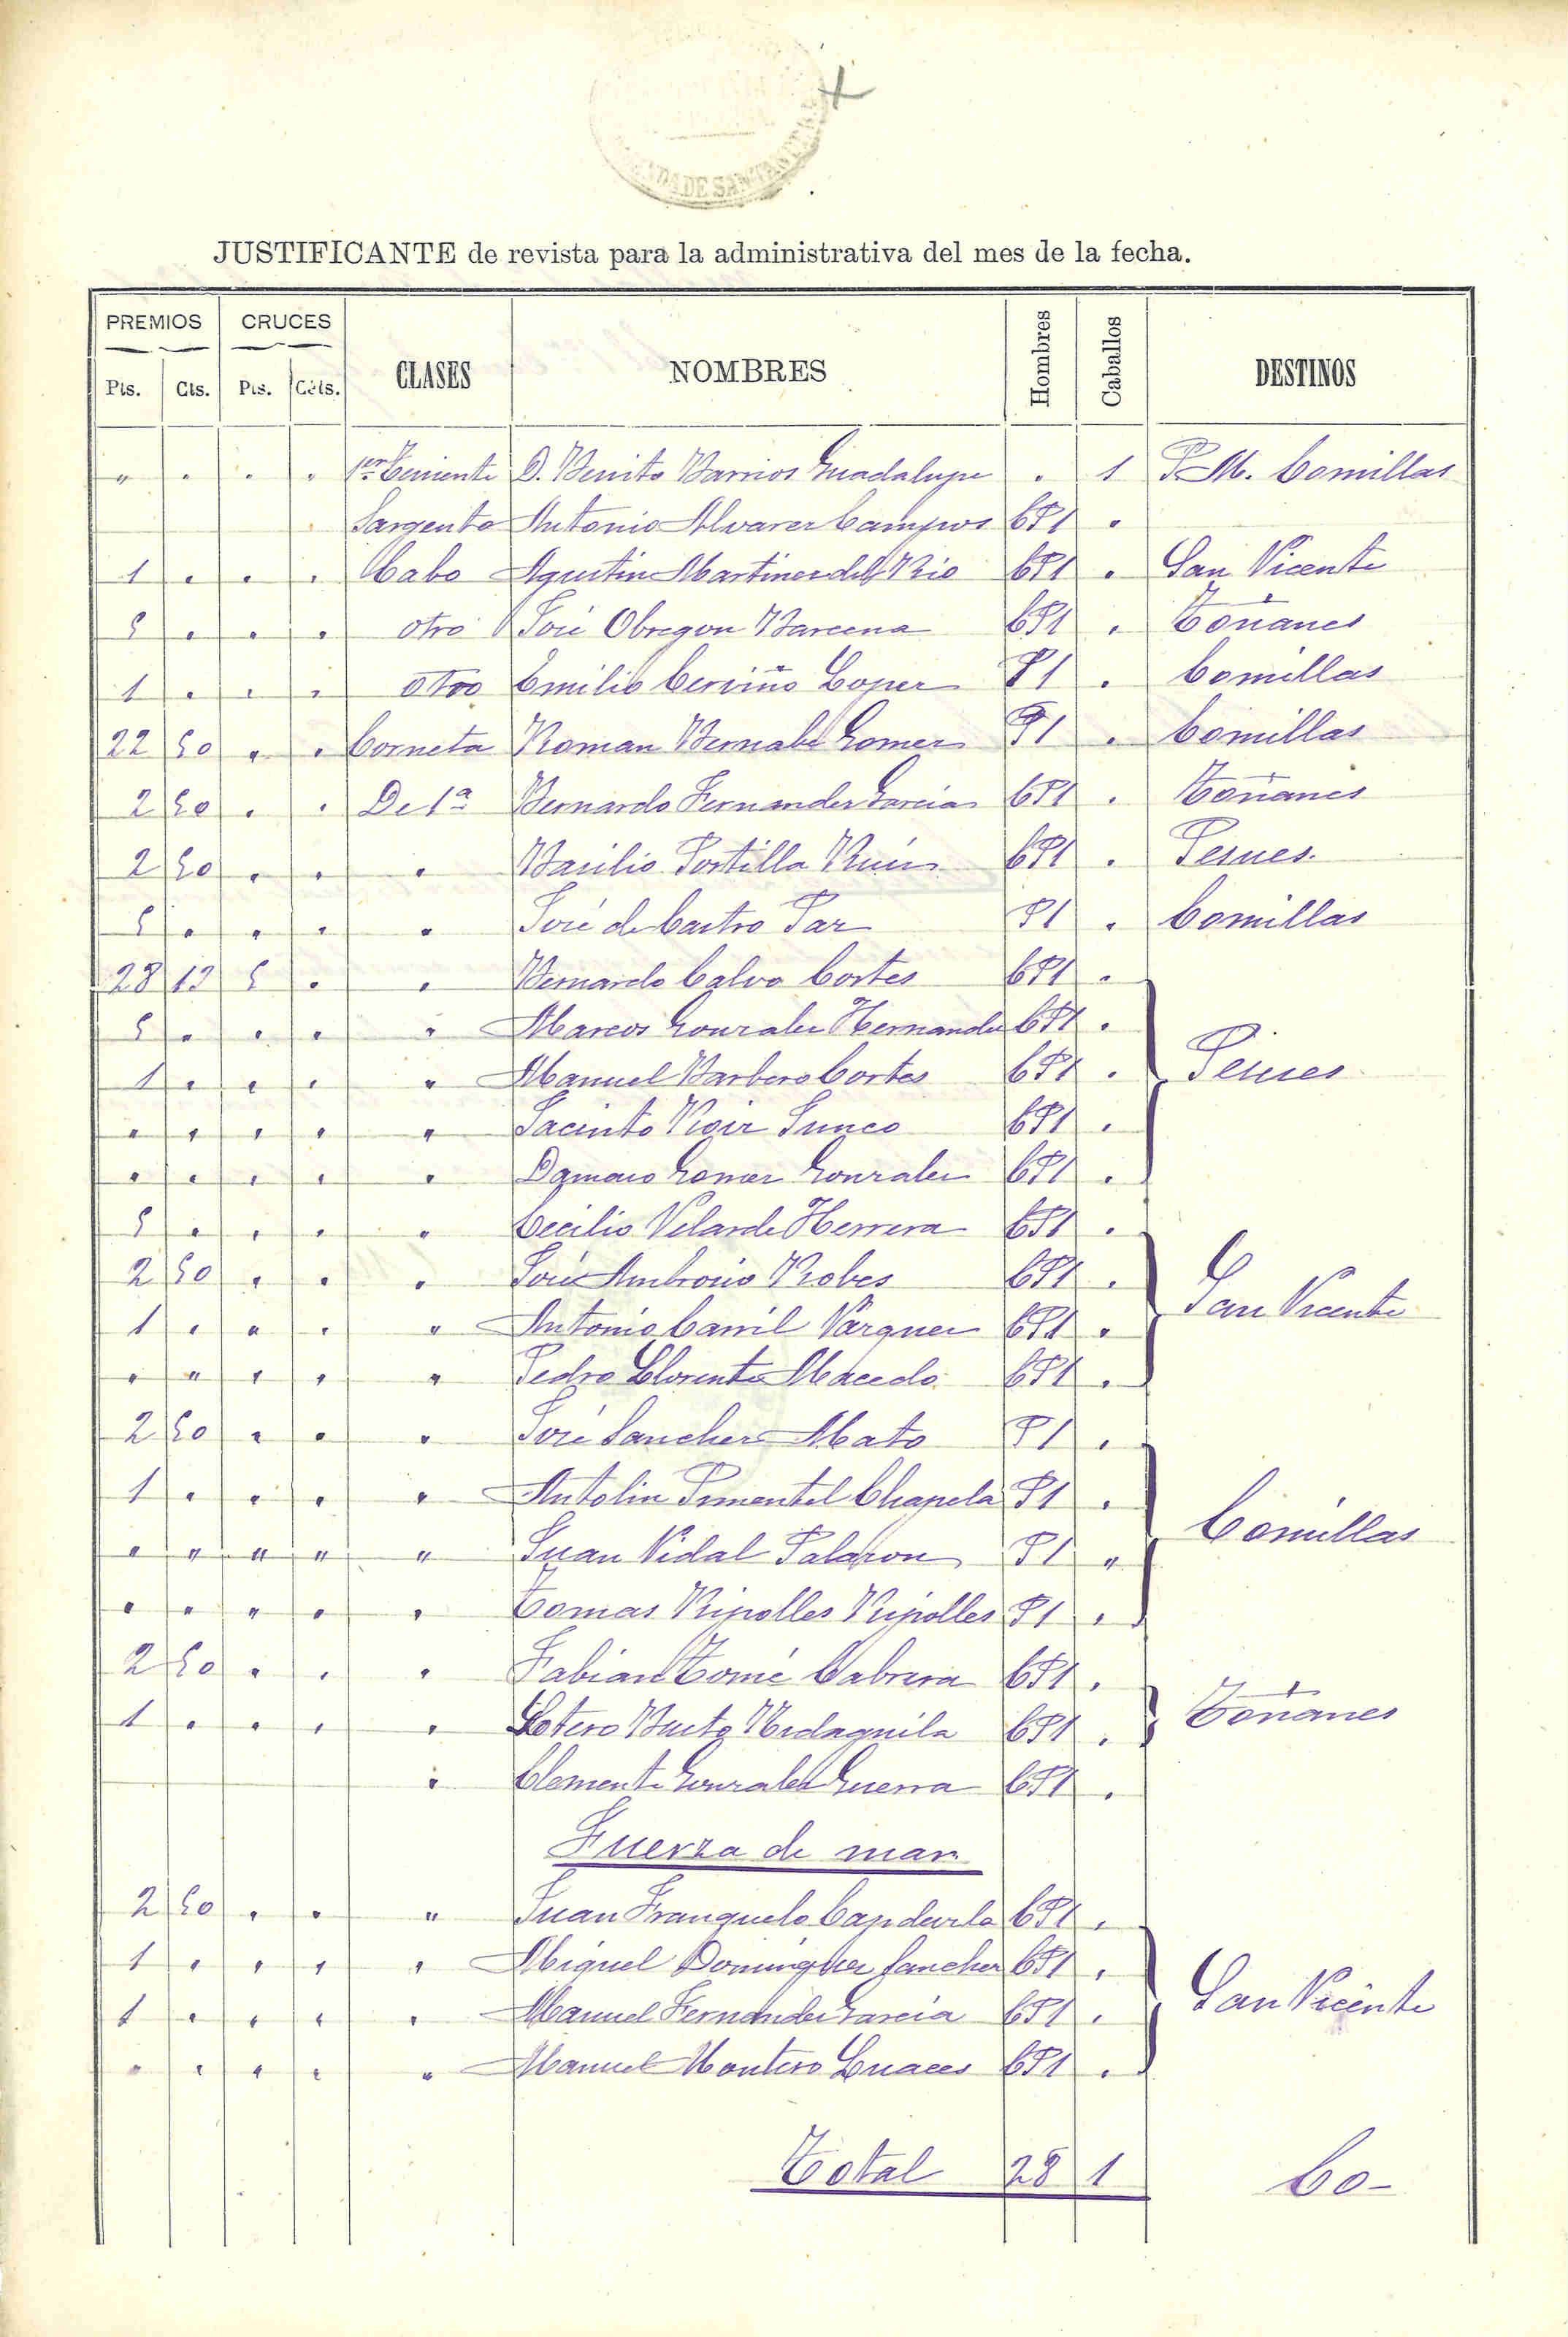 DE SANTANDER
JUSTIFICANTE de revista para la administrativa del mes de la fecha.
PREMIOS CRUCES CLASES NOMBRES Hombres Caballos DESTINOS
Pts. Cts. Pts. Céts.
" " " " 1er Teniente D. Benito Barrios Guadalupe " 1 P.M. Comillas
Sargento Antonio Alvarez Campos CP1 "
1 " " " Cabo Agustin Martinez del Rio CP1 " San Vicente
5 " " " otro José Obregon Barcena CP1 " Toñanes
1 " " " otro Emilio Cerviño Lopez P1 " Comillas
22 50 " " Corneta Roman Bernabe Gomez P1 " Comillas
2 50 " " De 1ª Bernardo Fernandez Garcia CP1 " Toñanes
2 50 " " " Basilio Portilla Ruiz CP1 " Pesues.
5 " " " " José de Castro Paz P1 " Comillas
28 13 5 " " Bernardo Calvo Cortes CP1 "
5 " " " " Marcos Gonzalez Hernandez CP1 "
1 " " " " Manuel Barbero Cortes CP1 " Pesues
" " " " " Jacinto Roiz Junco CP1 "
" " " " " Damaso Gomez Gonzalez CP1 "
5 " " " " Cecilio Velarde Herrera CP1 "
2 50 " " " José Ambrosio Robes CP1 "
1 " " " " Antonio Carril Vazquez CP1 " San Vicente
" " " " " Pedro Llorente Macedo CP1 "
2 50 " " " José Sanchez Mato P1 "
1 " " " " Antolin Pimentel Chapela P1 "
" " " " " Juan Vidal Palazon P1 " Comillas
" " " " " Tomas Ripolles Ripolles P1 "
2 50 " " " Fabian Tomé Cabrera CP1 "
1 " " " " Sotero CP1 " Toñanes
" Clemente Gonzalez Guerra CP1 "
Fuerza de mar
2 50 " " " Juan Franquelo Capdevila CP1 "
1 " " " " Miguel Dominguez Sanchez CP1 "
1 " " " " Manuel Fernandez Garcia CP1 " San Vicente
" " " " " Manuel Montero Luaces CP1 "
Total 28 1 Co-